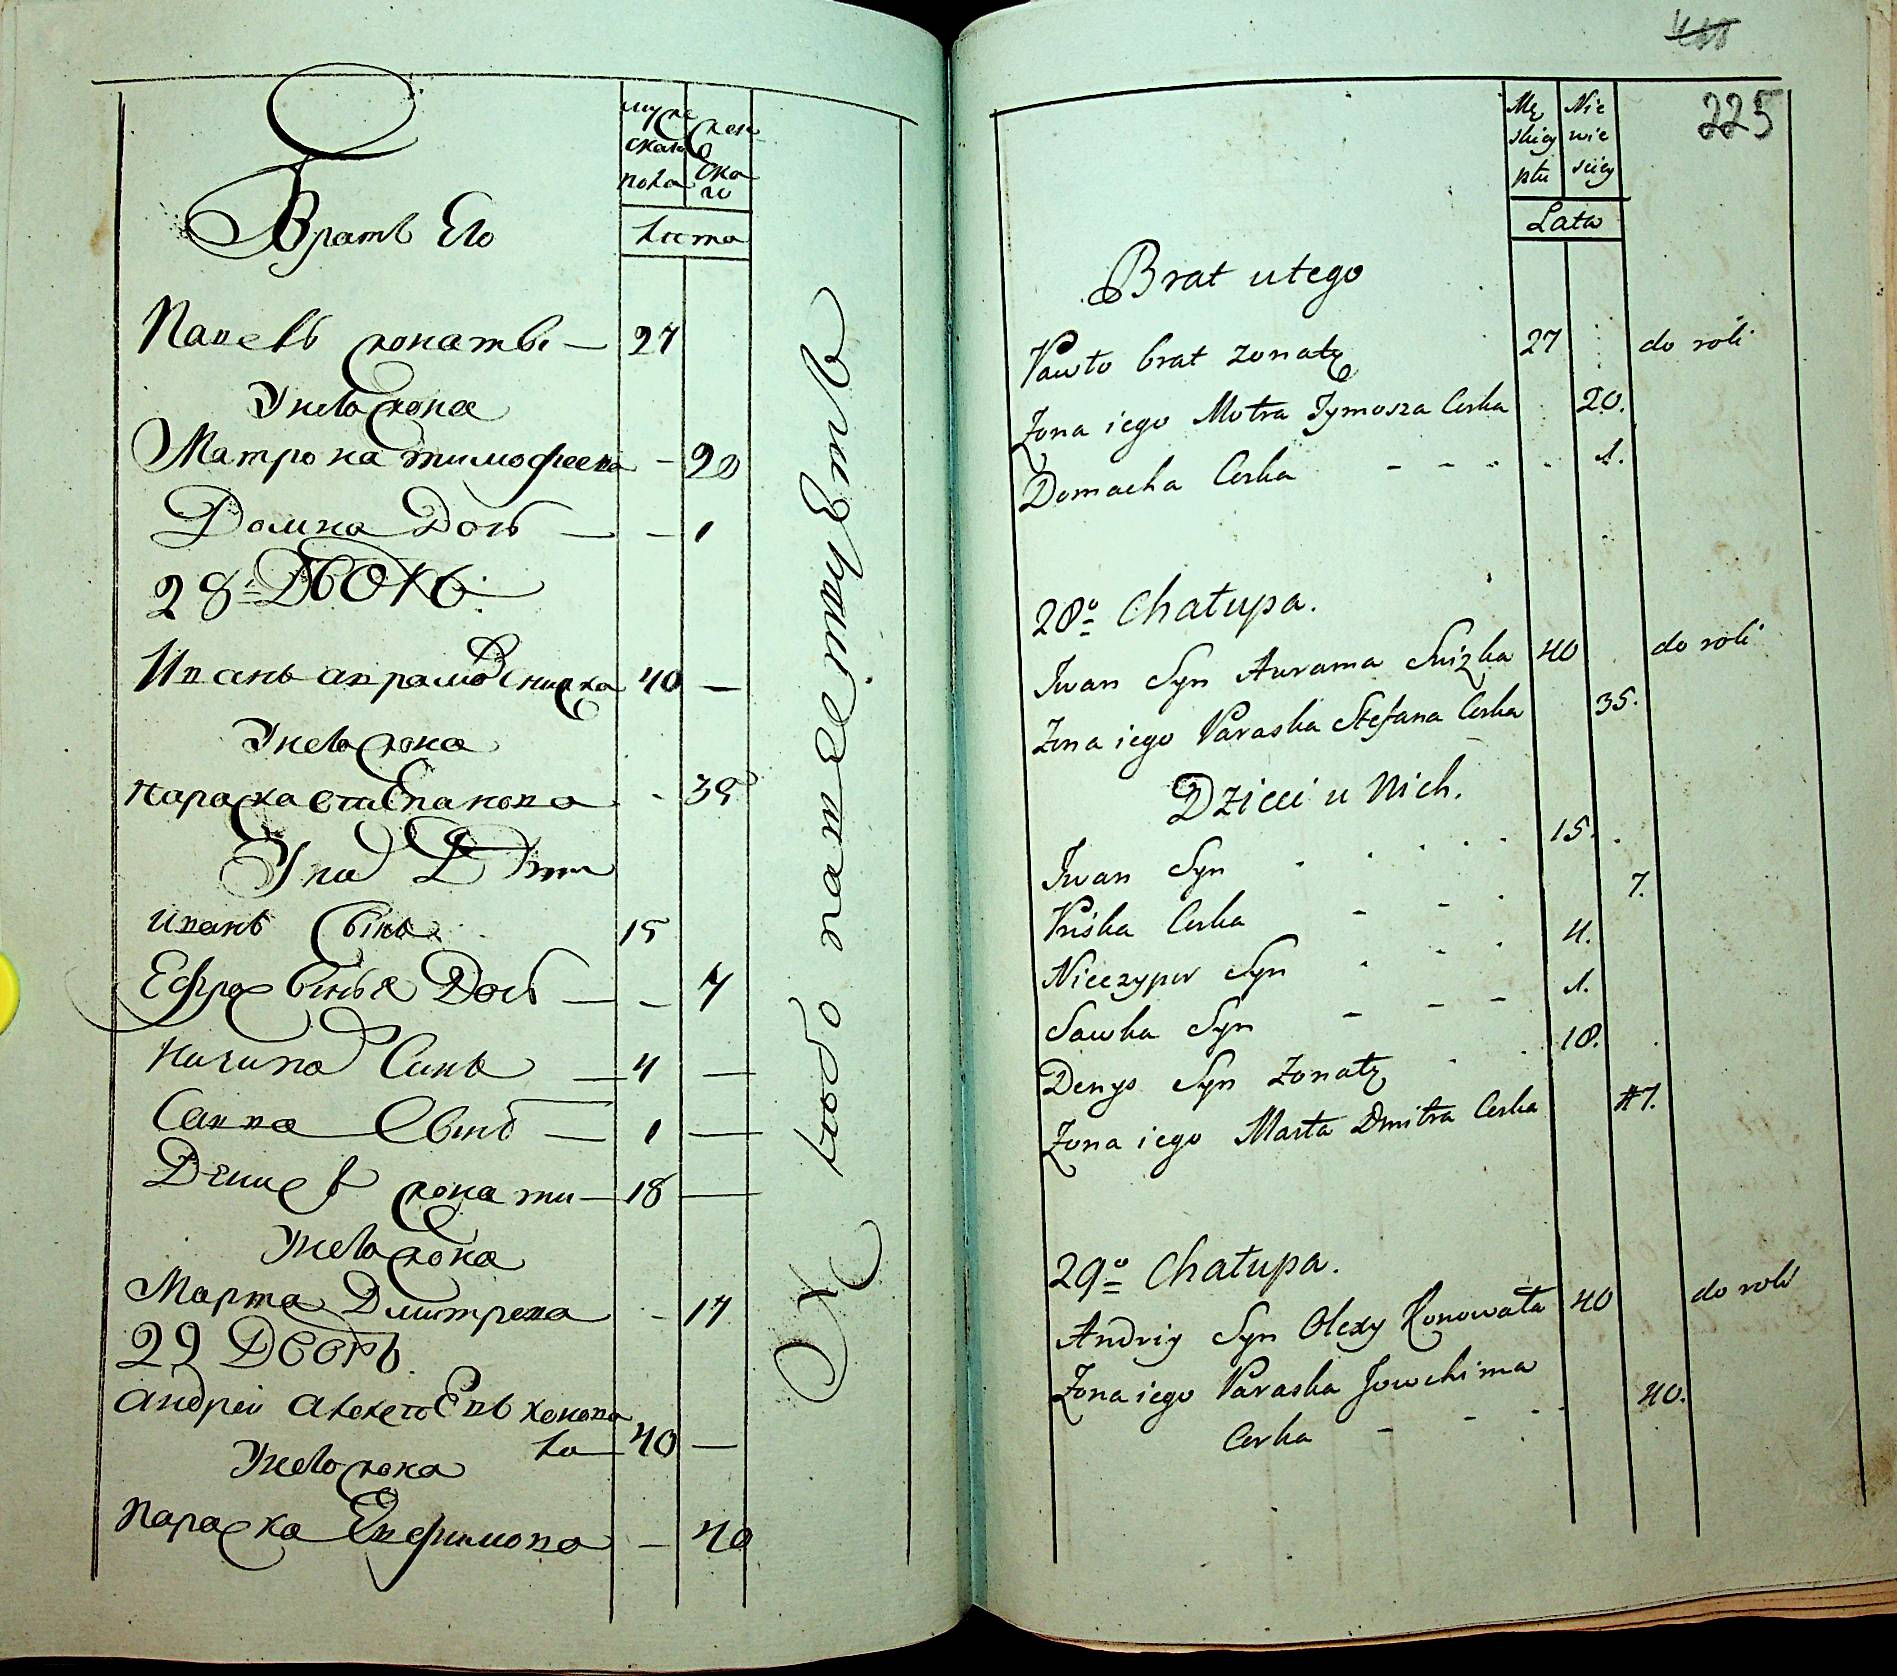 муже
скаго
пола
жен
ска
го
Лета
Братъ Его
Павелъ жонатъ — 27
У него жона
Матрона тимофеева - 20
Домна Дочь — - 1
28: ДВОРЪ.
Иванъ аврамовъ Снижка 40 —
У него жона
параска степанова - 35
У них Дѣти
иванъ Сынъ 15
Ефросинья Дочь — - 7
Ничипор Синъ — 4 —
Савка Сынъ — 1 —
Денисъ жонати — 18 —
У него жона
Марта Дмитрева - 17
29 Дворъ.
андрей алексеевъ конова
ла — 40 —
У него жона
параска Евфимова - 40
К хлебопашеству Етъ
225
Mę
skiey
płci
Nie
wie
ściey
Lata
Brat u tego
Pawło brat żonaty 27 do roli
Żona iego Motra Tymosza Corka 20.
Domacha Corka - - - - 1.
28º Chałupa.
Iwan Syn Awrama Snizka 40 do roli
Żona iego Paraska Stefana Corka 35.
Dzieci u Nich.
Iwan Syn 15.
Priska Corka - - 7.
Nieczypor Syn 4.
Sawka Syn - - - 1.
Denys Syn żonaty 18.
Żona iego Marta Dmitra Corka 17.
29º Chałupa.
Andriy Syn Olexy Konowała 40 do roli
Żona iego Paraska Jowchima
Corka - - - 40.